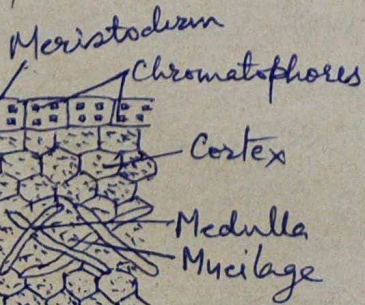 Meristoderm
Chromatophores
Cortex
Medulla
Mucilage